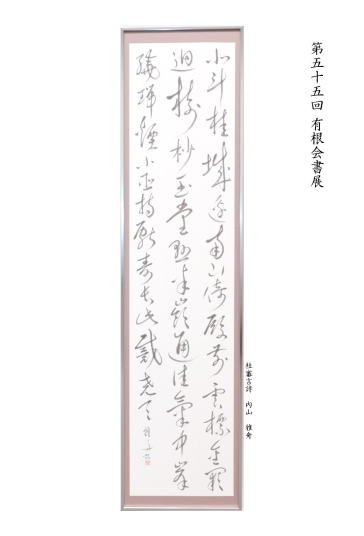 第五十五回 有根会書展
北斗挂城邊南山倚殿前雲標金闕
迥樹杪玉堂懸半嶺通佳氣中峯
繞瑞煙小臣持獻壽長此戴堯天
杜審言詩 内山 雅舟